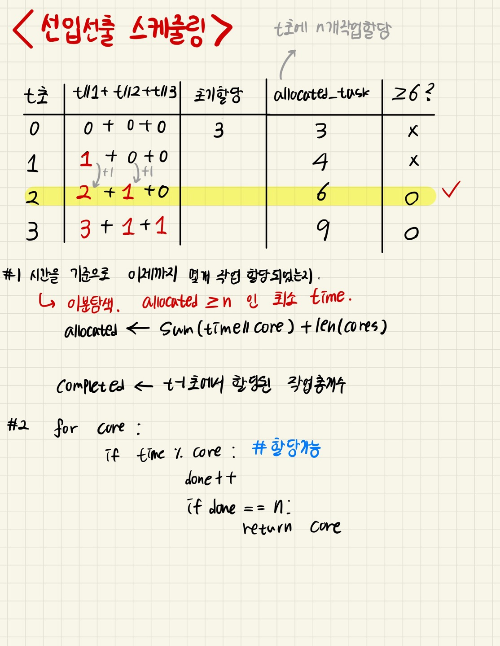 <선입선출 스케줄링>
t초에 n개작업할당
t초 t//1 + t//2 + t//3 초기할당 allocated_task ≥6?
0 0 + 0 + 0 3 3 x
1 1 + 0 + 0 4 x
+1 +1
2 2 + 1 + 0 6 O
3 3 + 1 + 1 9 O
#1 시간을 기준으로 이제까지 몇개 작업 할당되었는지.
↳ 이분탐색. allocated ≥ n 인 최소 time.
allocated ← Sum(time//core) + len(cores)
Completed ← t-1초에서 할당된 작업총개수
#2 for core :
if time % core : # 할당가능
done++
if done == n:
return core